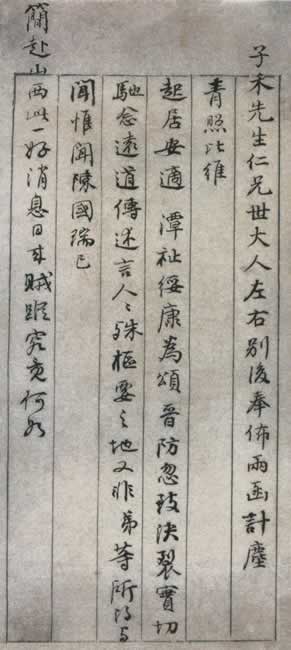 子禾先生仁兄世大人左右別後奉佈兩函計塵
青照比維
起居安適潭祉綏康為頌晉防忽致決裂實切
馳念遠道傳述言人人殊樞要之地又非弟等所得与
聞惟聞陳國瑞已
簡赴山西此一好消息日来賊蹤究竟何如